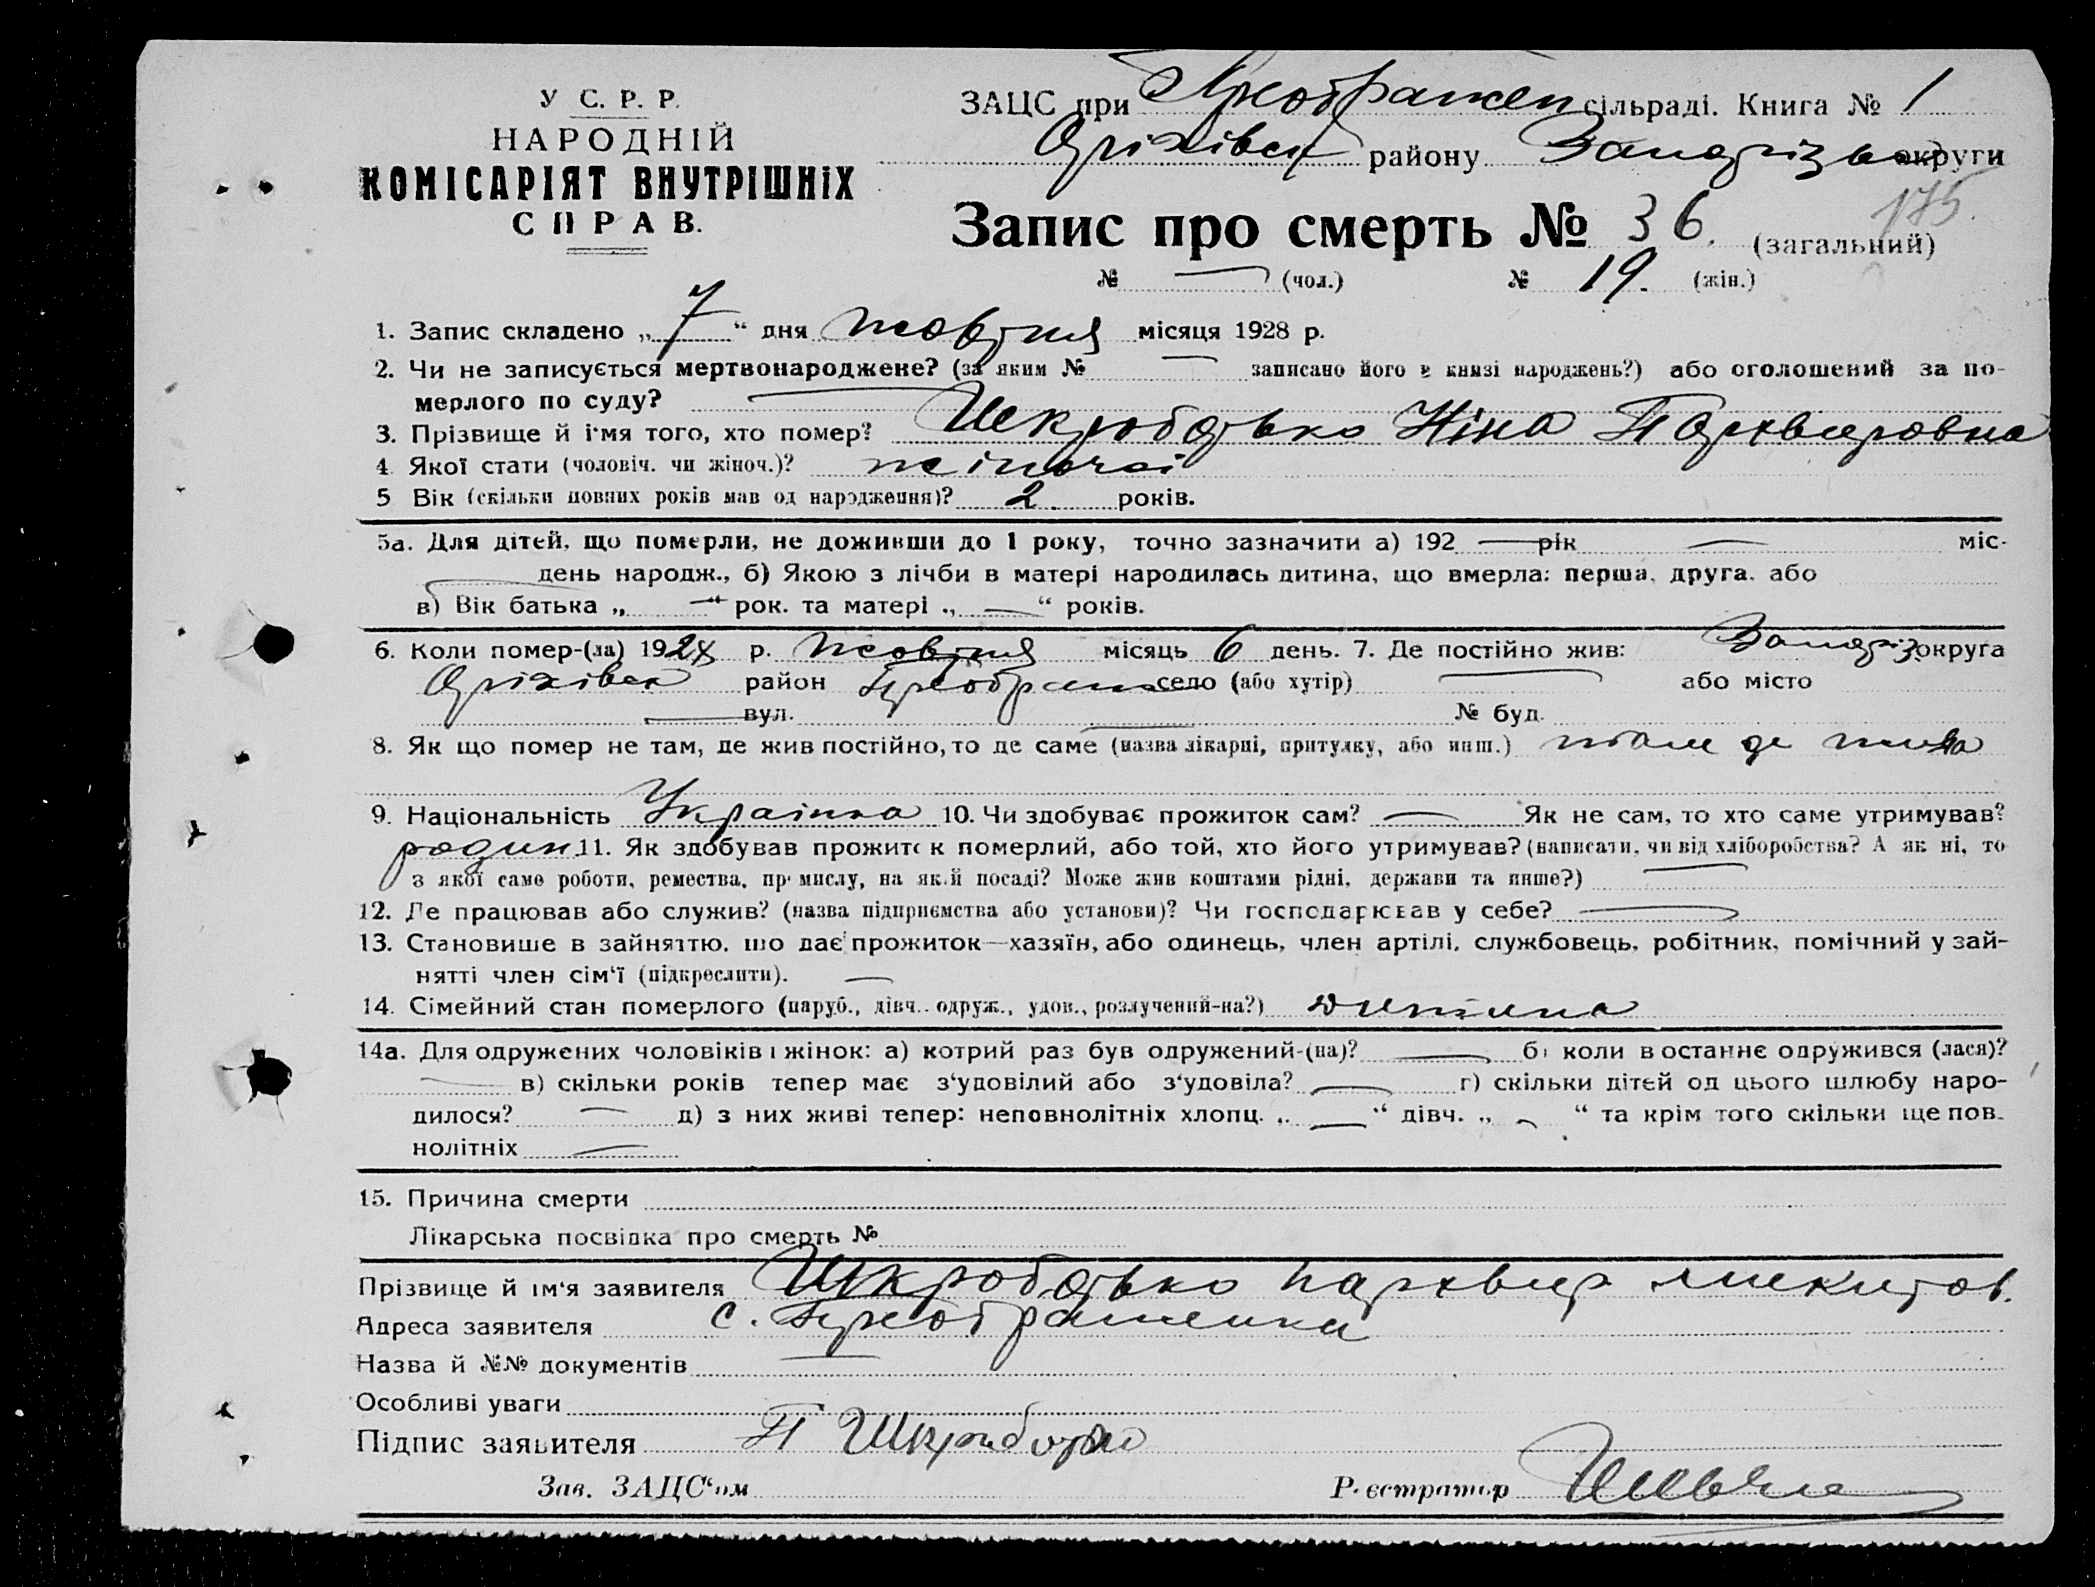 У С. Р. Р.
НАРОДНІЙ
КОМІСАРІЯТ ВНУТРІШНІХ
СПРАВ.
ЗАЦС при Преображен сільраді. Книга № 1
Оріхівськ району Запорізької округи
175.
Запис про смерть № 36. (загальний)
№ — (чол.) № 19. (жін.)
1. Запис складено „7“ дня жовтня місяця 1928 р.
2. Чи не записується мертвонароджене? (за яким № — записано його в книзі народжень?) або оголошений за по-
мерлого по суду? —
3. Прізвище й ім'я того, хто помер? Шкроботько Ніна Пархвировна
4 Якої стати (чоловіч. чи жіноч.)? жіночої
5 Вік (скільки повних років мав од народження)? 2. років.
5а. Для дітей, що померли, не доживши до 1 року, точно зазначити а) 192 — рік — міс-
— день народж., б) Якою з лічби в матері народилась дитина, що вмерла: перша, друга, або
в) Вік батька „ — “ рок. та матері „ — “ років.
6. Коли помер-(ла) 1928 р. жовтня місяць 6 день. 7. Де постійно жив: Запоріз округа
Оріхівськ район Преображен село (або хутір) — або місто
— вул. — № буд.
8. Як що помер не там, де жив постійно, то де саме (назва лікарні, притулку, або инш.) там де жила
9. Національність Українка 10. Чи здобуває прожиток сам? — Як не сам, то хто саме утримував?
родин 11. Як здобував прожиток померлий, або той, хто його утримував? (написати, чи від хліборобства? А як ні, то
з якої саме роботи, ремества, промислу, на якій посаді? Може жив коштами рідні, держави та инше?) —
12. Де працював або служив? (назва підприємства або установи)? Чи господарював у себе? —
13. Становище в зайняттю, що дає прожиток—хазяїн, або одинець, член артілі, службовець, робітник, помічний у зай-
нятті член сім'ї (підкреслити). —
14. Сімейний стан померлого (паруб., дівч., одруж., удов., розлучений-на?) дитина
14а. Для одружених чоловіків і жінок: а) котрий раз був одружений-(на)? — б) коли в останнє одружився (лася)?
— в) скільки років тепер має з'удовілий або з'удовіла? — г) скільки дітей од цього шлюбу наро-
дилося? — д) з них живі тепер: неповнолітніх хлопц. „ — “ дівч. „ — “ та крім того скільки ще пов-
нолітніх —
15. Причина смерти
Лікарська посвідка про смерть №
Прізвище й ім'я заявителя Шкроботько Пархвир Микитов.
Адреса заявителя с. Преображенка
Назва й №№ документів —
Особливі уваги
Підпис заявителя П Шкроботко
Зав. ЗАЦС'ом Реєстратор